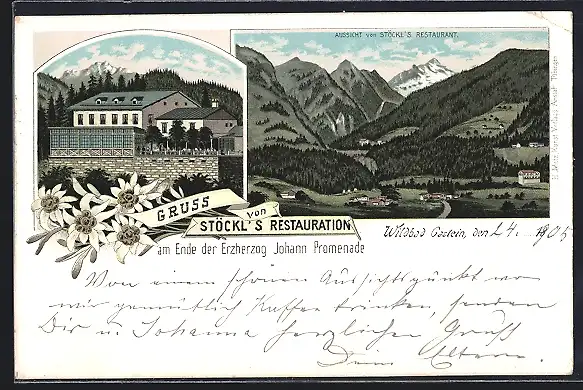 AUSSICHT von STÖCKL'S RESTAURANT.
GRUSS
von
STÖCKL'S RESTAURATION
am Ende der Erzherzog Johann Promenade
Wildbad Gastein, den 24. 1905
Von einem schönen Aussichtspunkt wo
wir gemütlich Kaffee trinken, senden
Dir u. Johanna herzlichen Gruss
Dein Eltern.